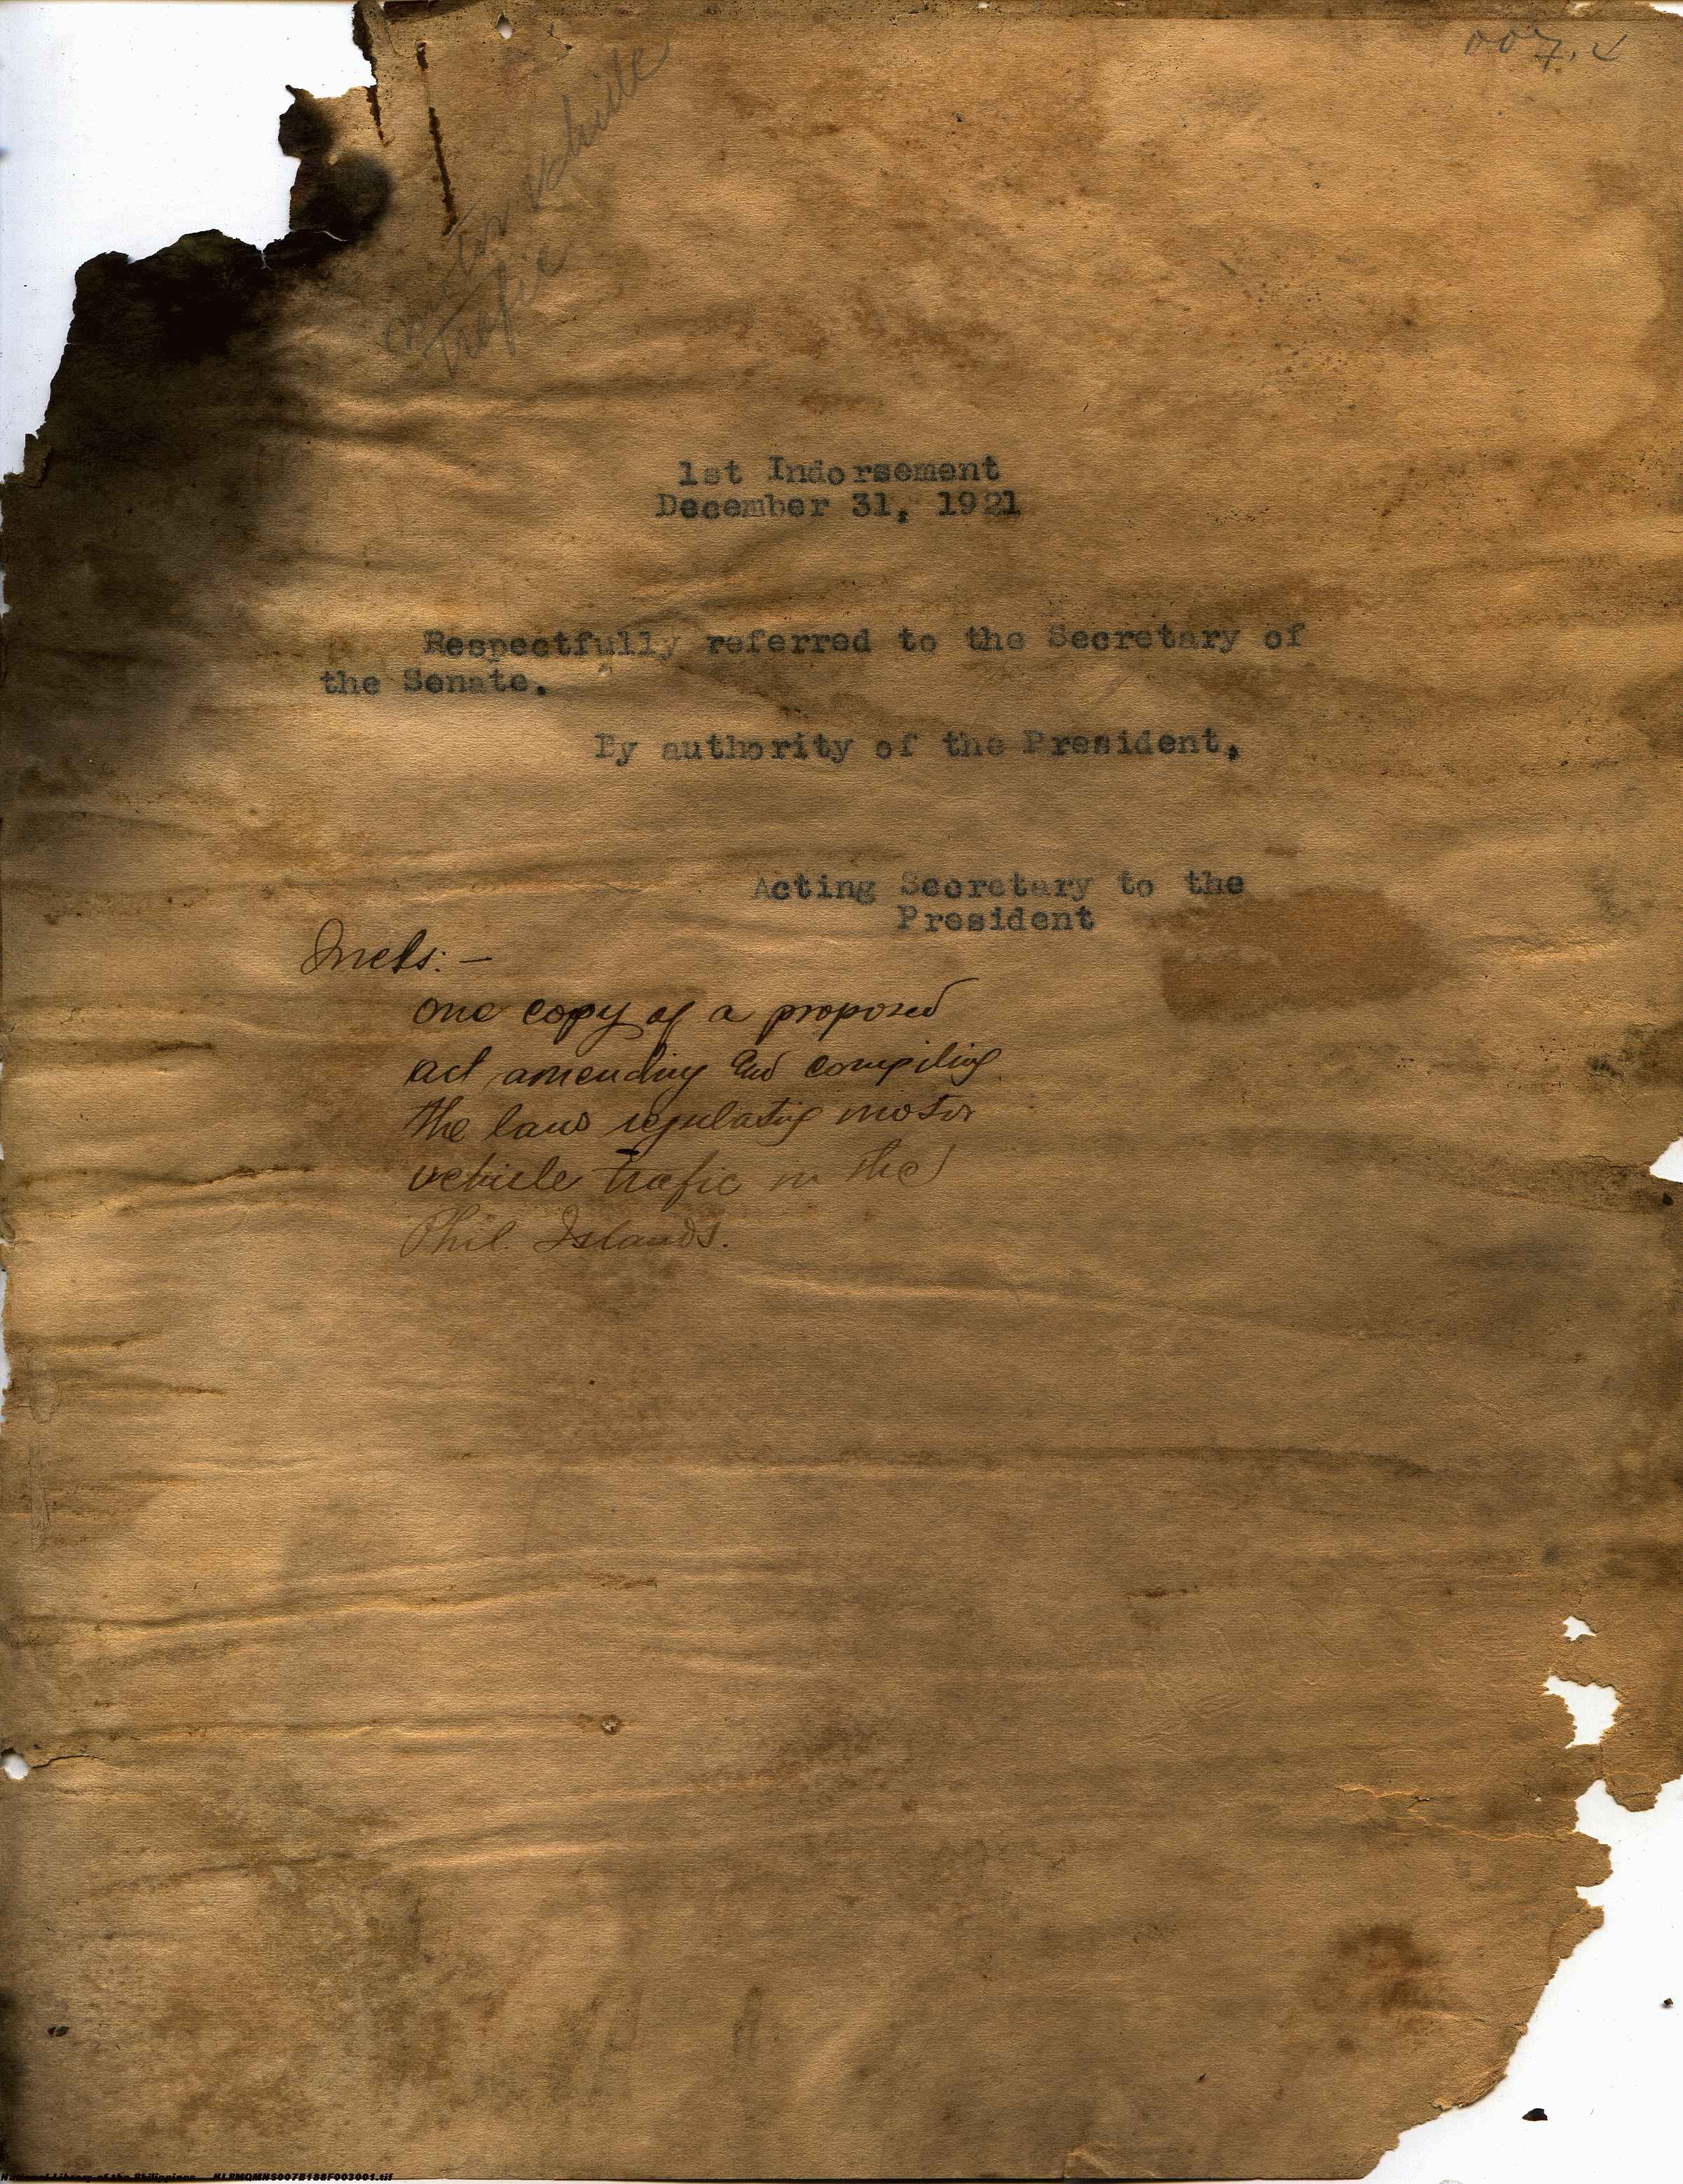 007. ✓
motor vehicle
trafic
1st Indorsement
December 31, 1921
Respectfully referred to the Secretary of
the Senate.
By authority of the President,
Acting Secretary to the
President
Incls: —
one copy of a proposed
act amending and compiling
the laws regulating motor
vehicle trafic in the
Phil. Islands.
National Library of the Philippines NLPMQMNS007B188F003001.tif